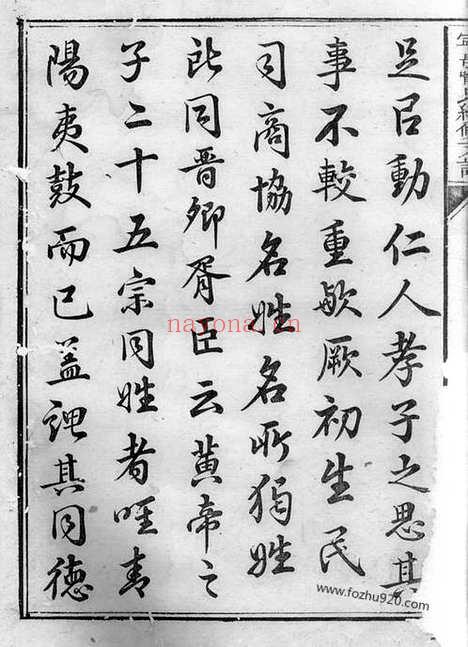 足㠯動仁人孝子之思其
事不較重歟厥初生民
司商協名姓名所獨姓
所同晋卿胥臣云黄帝之
子二十五宗同姓者唯青
陽夷鼓而已蓋謂其同德
nayona.cn
www.fozhu920.com